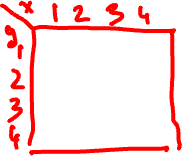 x 1 2 3 4
y 1
2
3
4